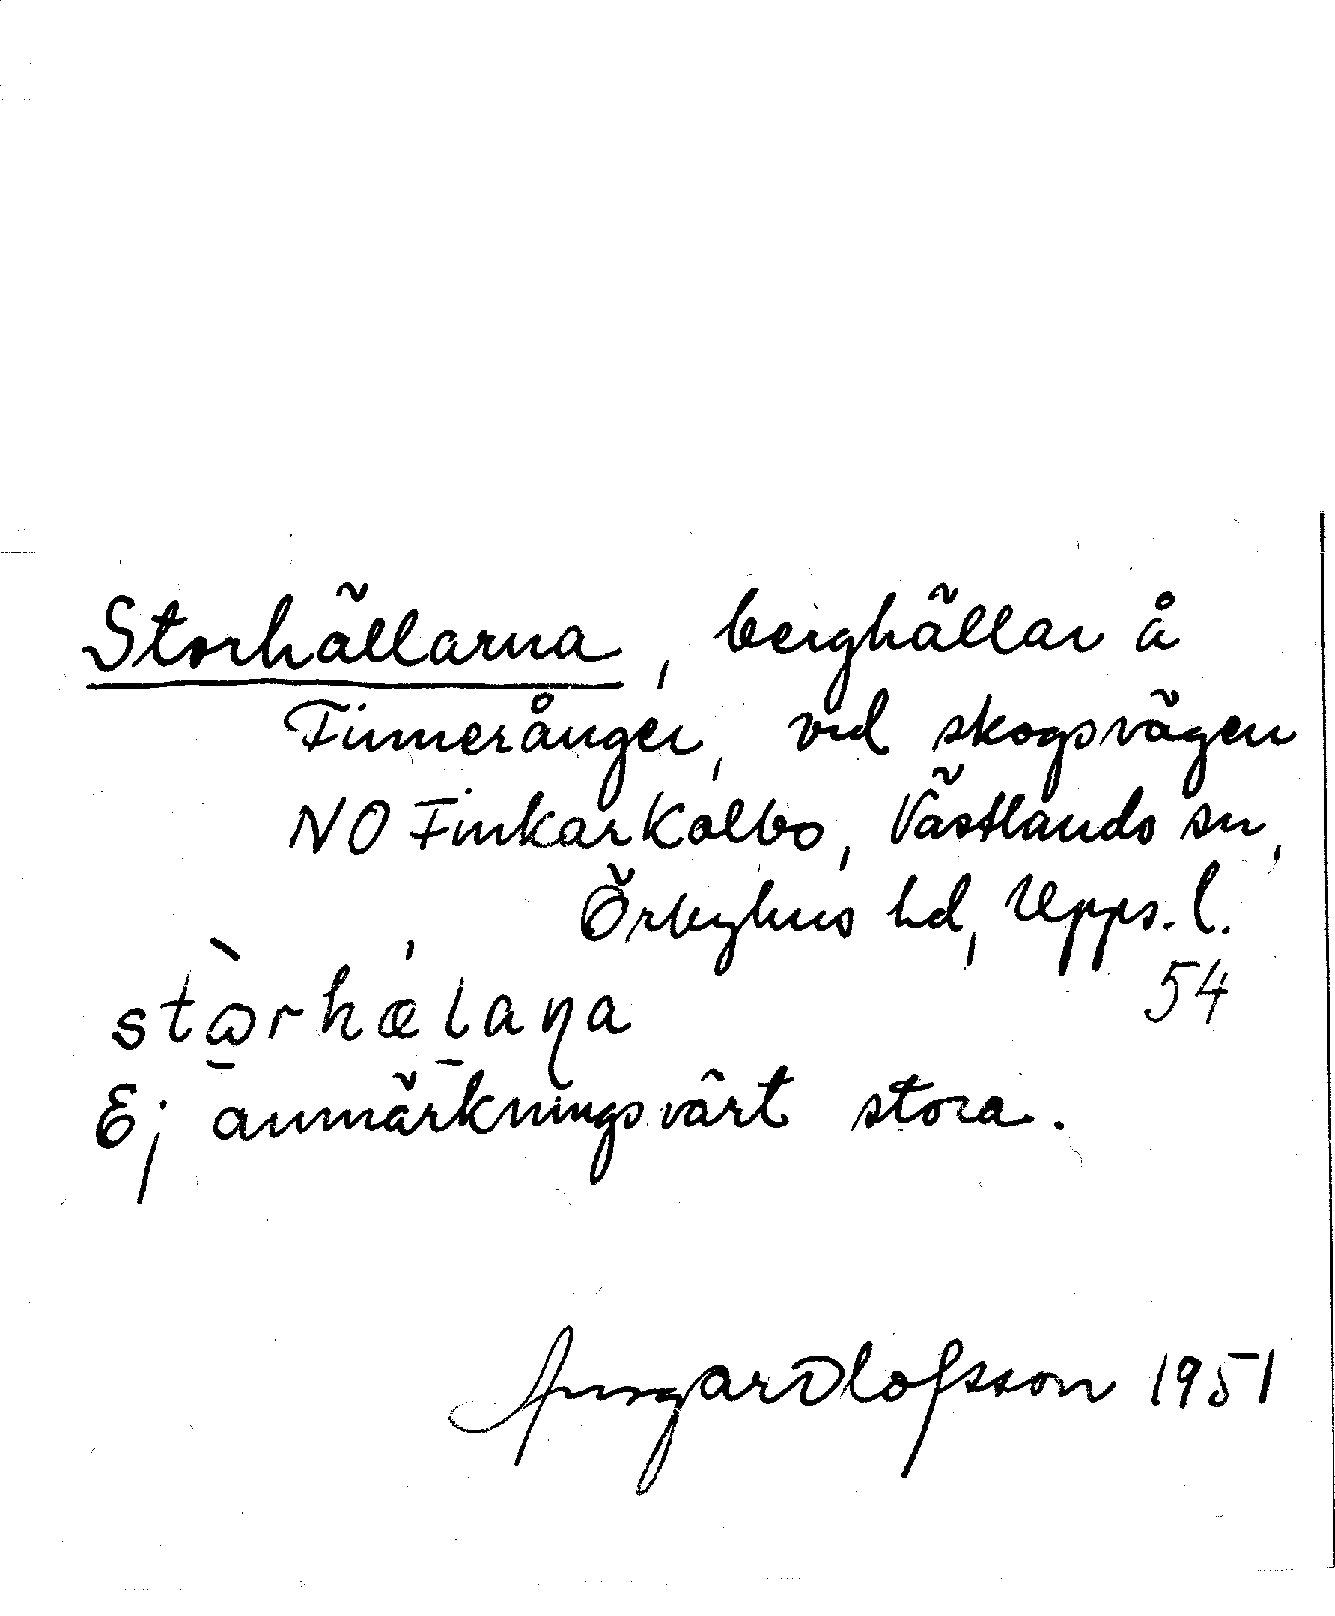 Storhällarna, berghällar å
Finnerånger, vid skogsvägen
NO Finkarkolbo, Västlands sn,
Örbyhus hd, Upps. l.
54
stɷ̀rhæ̍laṇa
Ej anmärkningsvärt stora.
Ansgar Olofsson 1951